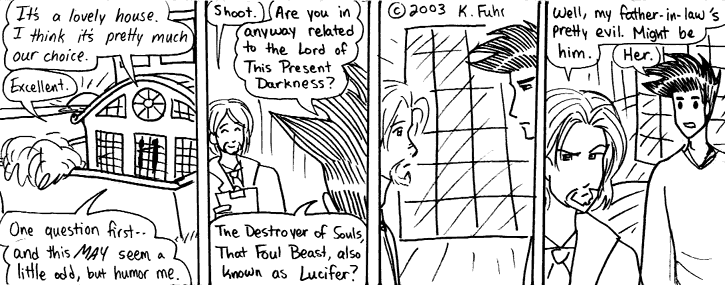 It's a lovely house.
I think it's pretty much
our choice.
Excellent.
One question first--
and this MAY seem a
little odd, but humor me.
Shoot.
Are you in
anyway related
to the Lord of
This Present
Darkness?
The Destroyer of Souls,
That Foul Beast, also
known as Lucifer?
© 2003 K. Fuhr
Well, my father-in-law's
pretty evil. Might be
him.
Her.